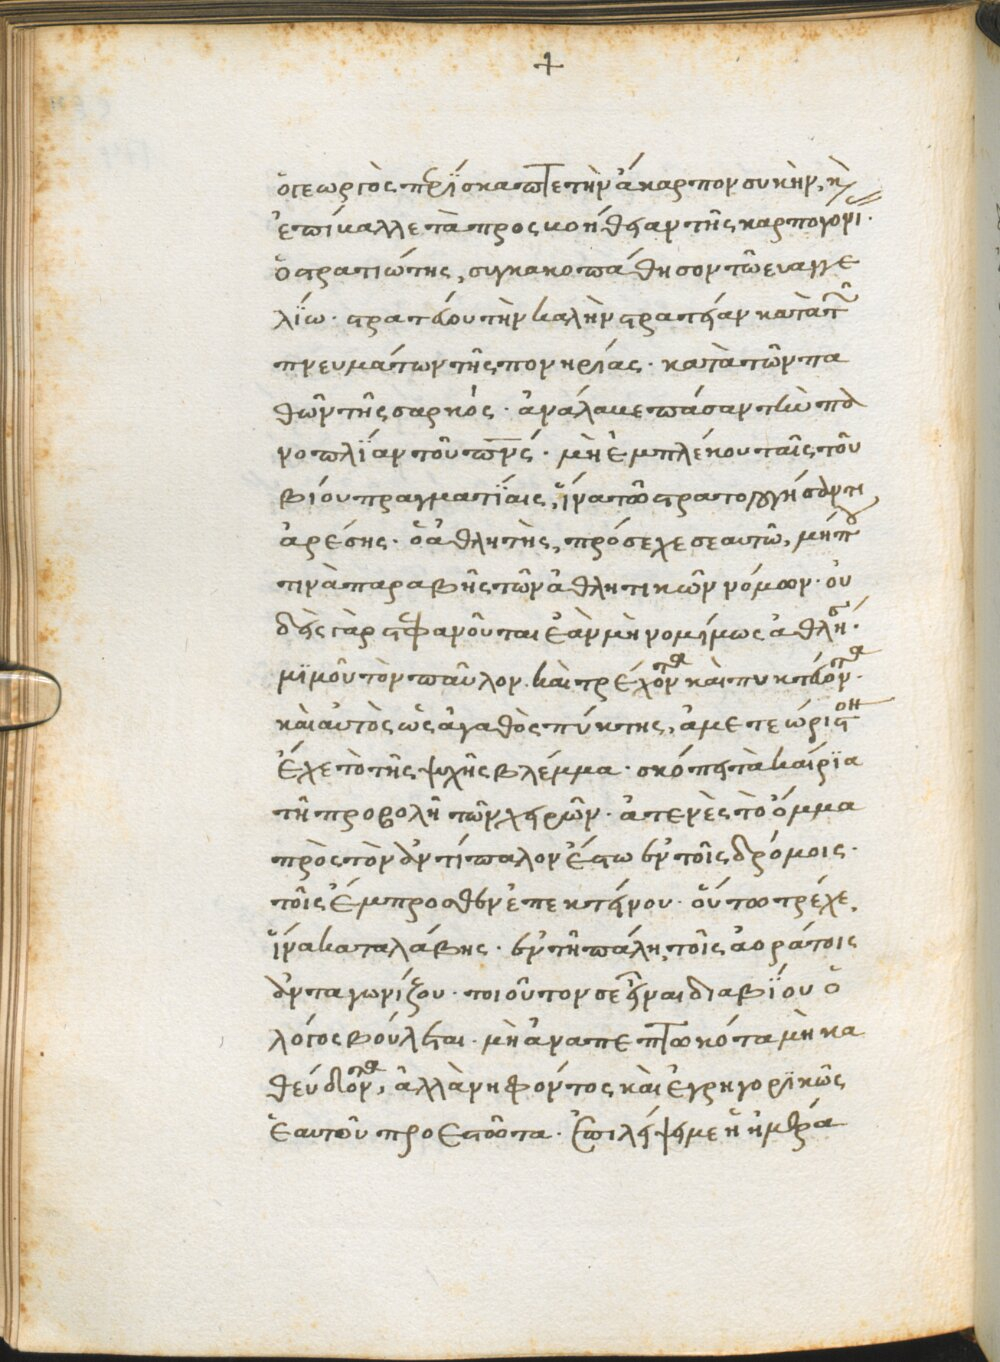 ὁ γεωργὸς περϊσκαπτε τὴν ἄκαρπον συκὴν, κὴ
ἐπίβαλλε τὰ προς βοήθειαν τῆς καρπογονι.
ὁ στρατιώτης, συγκακοπάθησον τῶ ευαγγε
λΐω. στρατεύου τὴν καλὴν στρατείαν κατὰ τῶν
πνευμάτων τῆς πονηρίας. κατὰ τῶν πα
θῶν τῆς σαρκός. ἀνάλαβε πάσαν τὴν πα
νοπλΐαν τοῦ πνς. μὴ ἐμπλέκου ταῖς τοῦ
βίου πραγματΐαις, ἵνα τῶ στρατολογήσαντι
ἀρέσης. ὁ ἀθλητὴς, πρόσεχε σεαυτῶ, μήπου
τινὰ παραβῆς τῶν ἀθλητικῶν νόμων. ου
δεὶς γὰρ στεφανοῦται ἐὰν μὴ νομίμως ἀθλήσῃ.
μϊμοῦ τὸν παῦλον. καὶ τρέχοντα καὶ πυκτεύοντα.
καὶ αὐτὸς ὡς ἀγαθὸς πύκτης, ἀμετεώριστον
ἔχε τὸ τῆς ψχῆς βλέμμα. σκόπει τὰ καίρϊα
τῆ προβολῆ τῶν χειρῶν. ἀτενὲς τὸ ὄμμα
πρὸς τὸν ἀντίπαλον ἔστω ἐν τοῖς δρόμοις.
τοῖς ἔμπροσθεν ἐπεκτείνου. οὕτω τρέχε,
ἵνα καταλάβης. ἐν τῆ πάλη, τοῖς ἀοράτοις
ἀνταγωνίζου. τοιοῦτον σε εἶναι δια βΐου ὁ
λόγος βούλεται. μὴ ἀναπεπτωκότα μὴ κα
θεύδοντα, ἀλλὰ νηφόντος καὶ ἐγρηγορϊκῶς
ἑαυτοῦ προεστῶτα. ἐπιλείψει με ἡ ἡμέρα